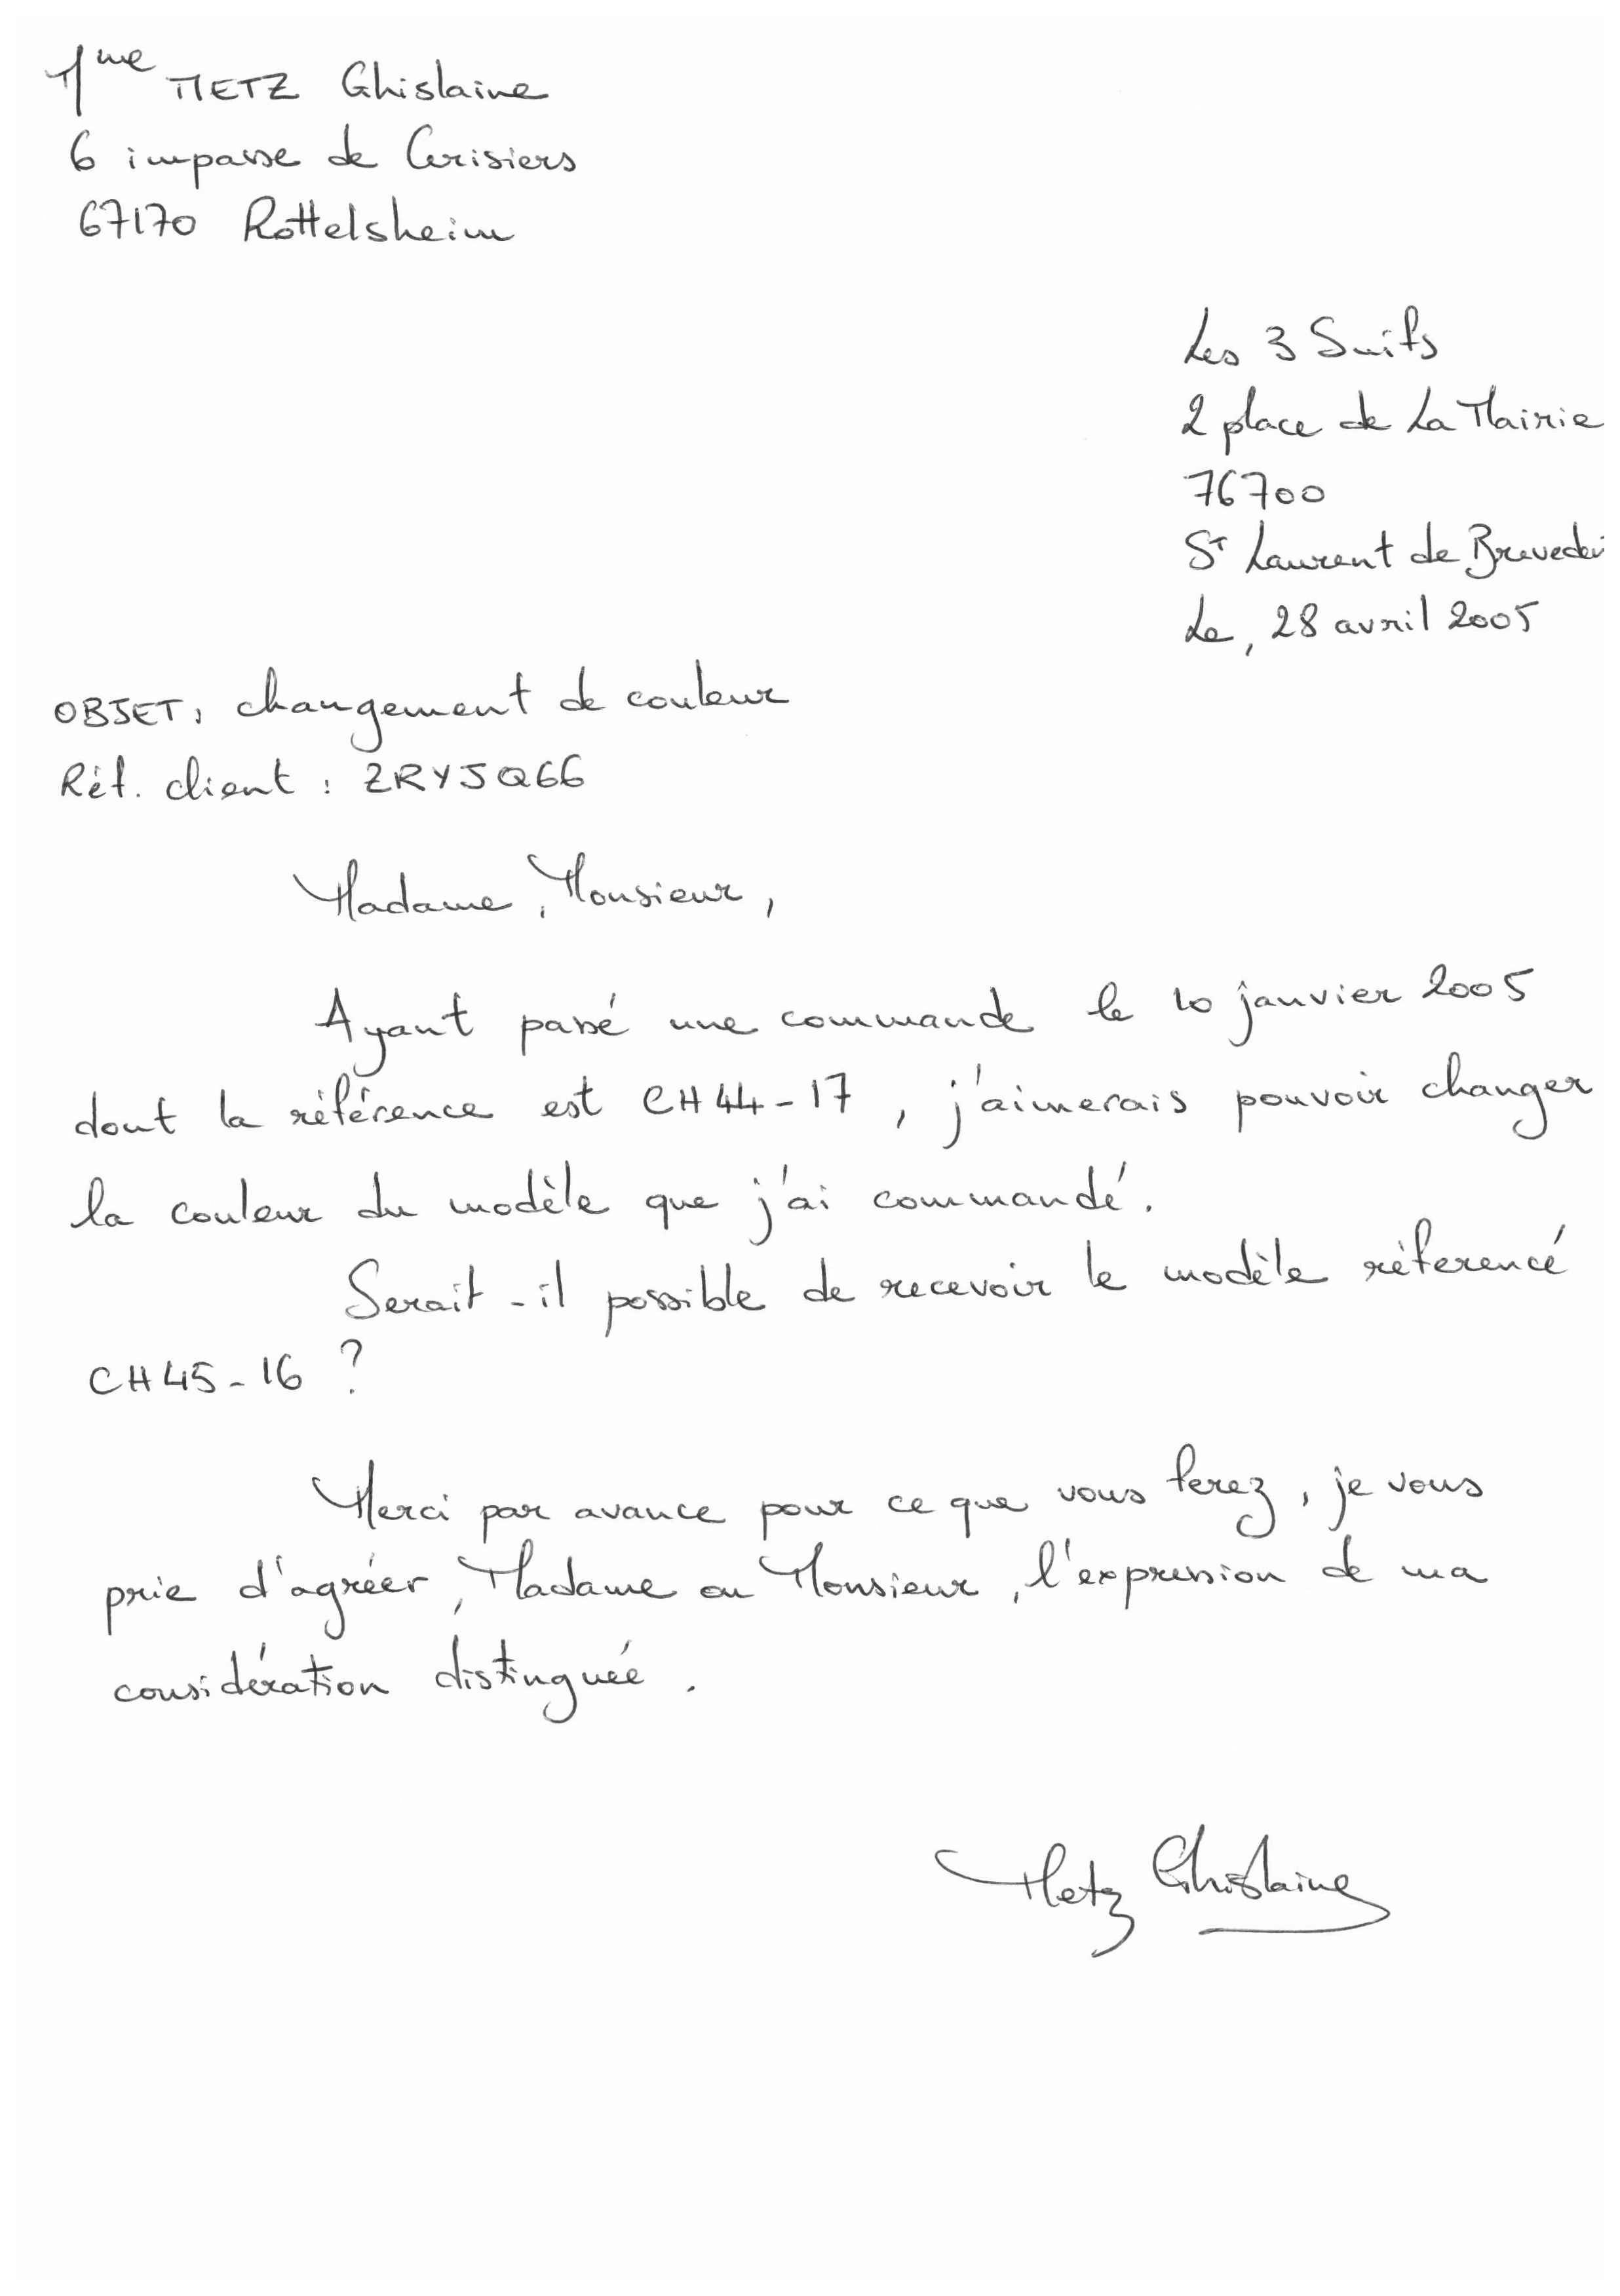 Mme METZ Ghislaine
6 impasse de Cerisiers
67170 Rottelsheim
Les 3 Suifs
2 place de La Mairie
76700
St Laurent de Brevedent
Le, 28 avril 2005
OBJET : changement de couleur
Réf. client : ZRYJQ66
Madame, Monsieur,
Ayant passé une commande le 10 janvier 2005
dont la référence est CH44-17, j'aimerais pouvoir changer
la couleur du modèle que j'ai commandé.
Serait-il possible de recevoir le modèle réferencé
CH45-16 ?
Merci par avance pour ce que vous ferez, je vous
prie d'agréer, Madame ou Monsieur, l'expression de ma
considération distinguée.
Metz Ghislaine